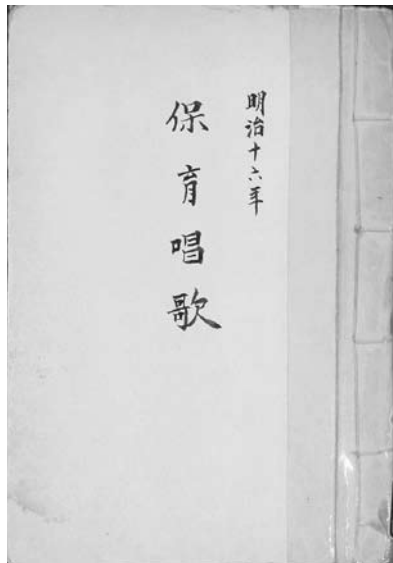 明治十六年
保育唱歌